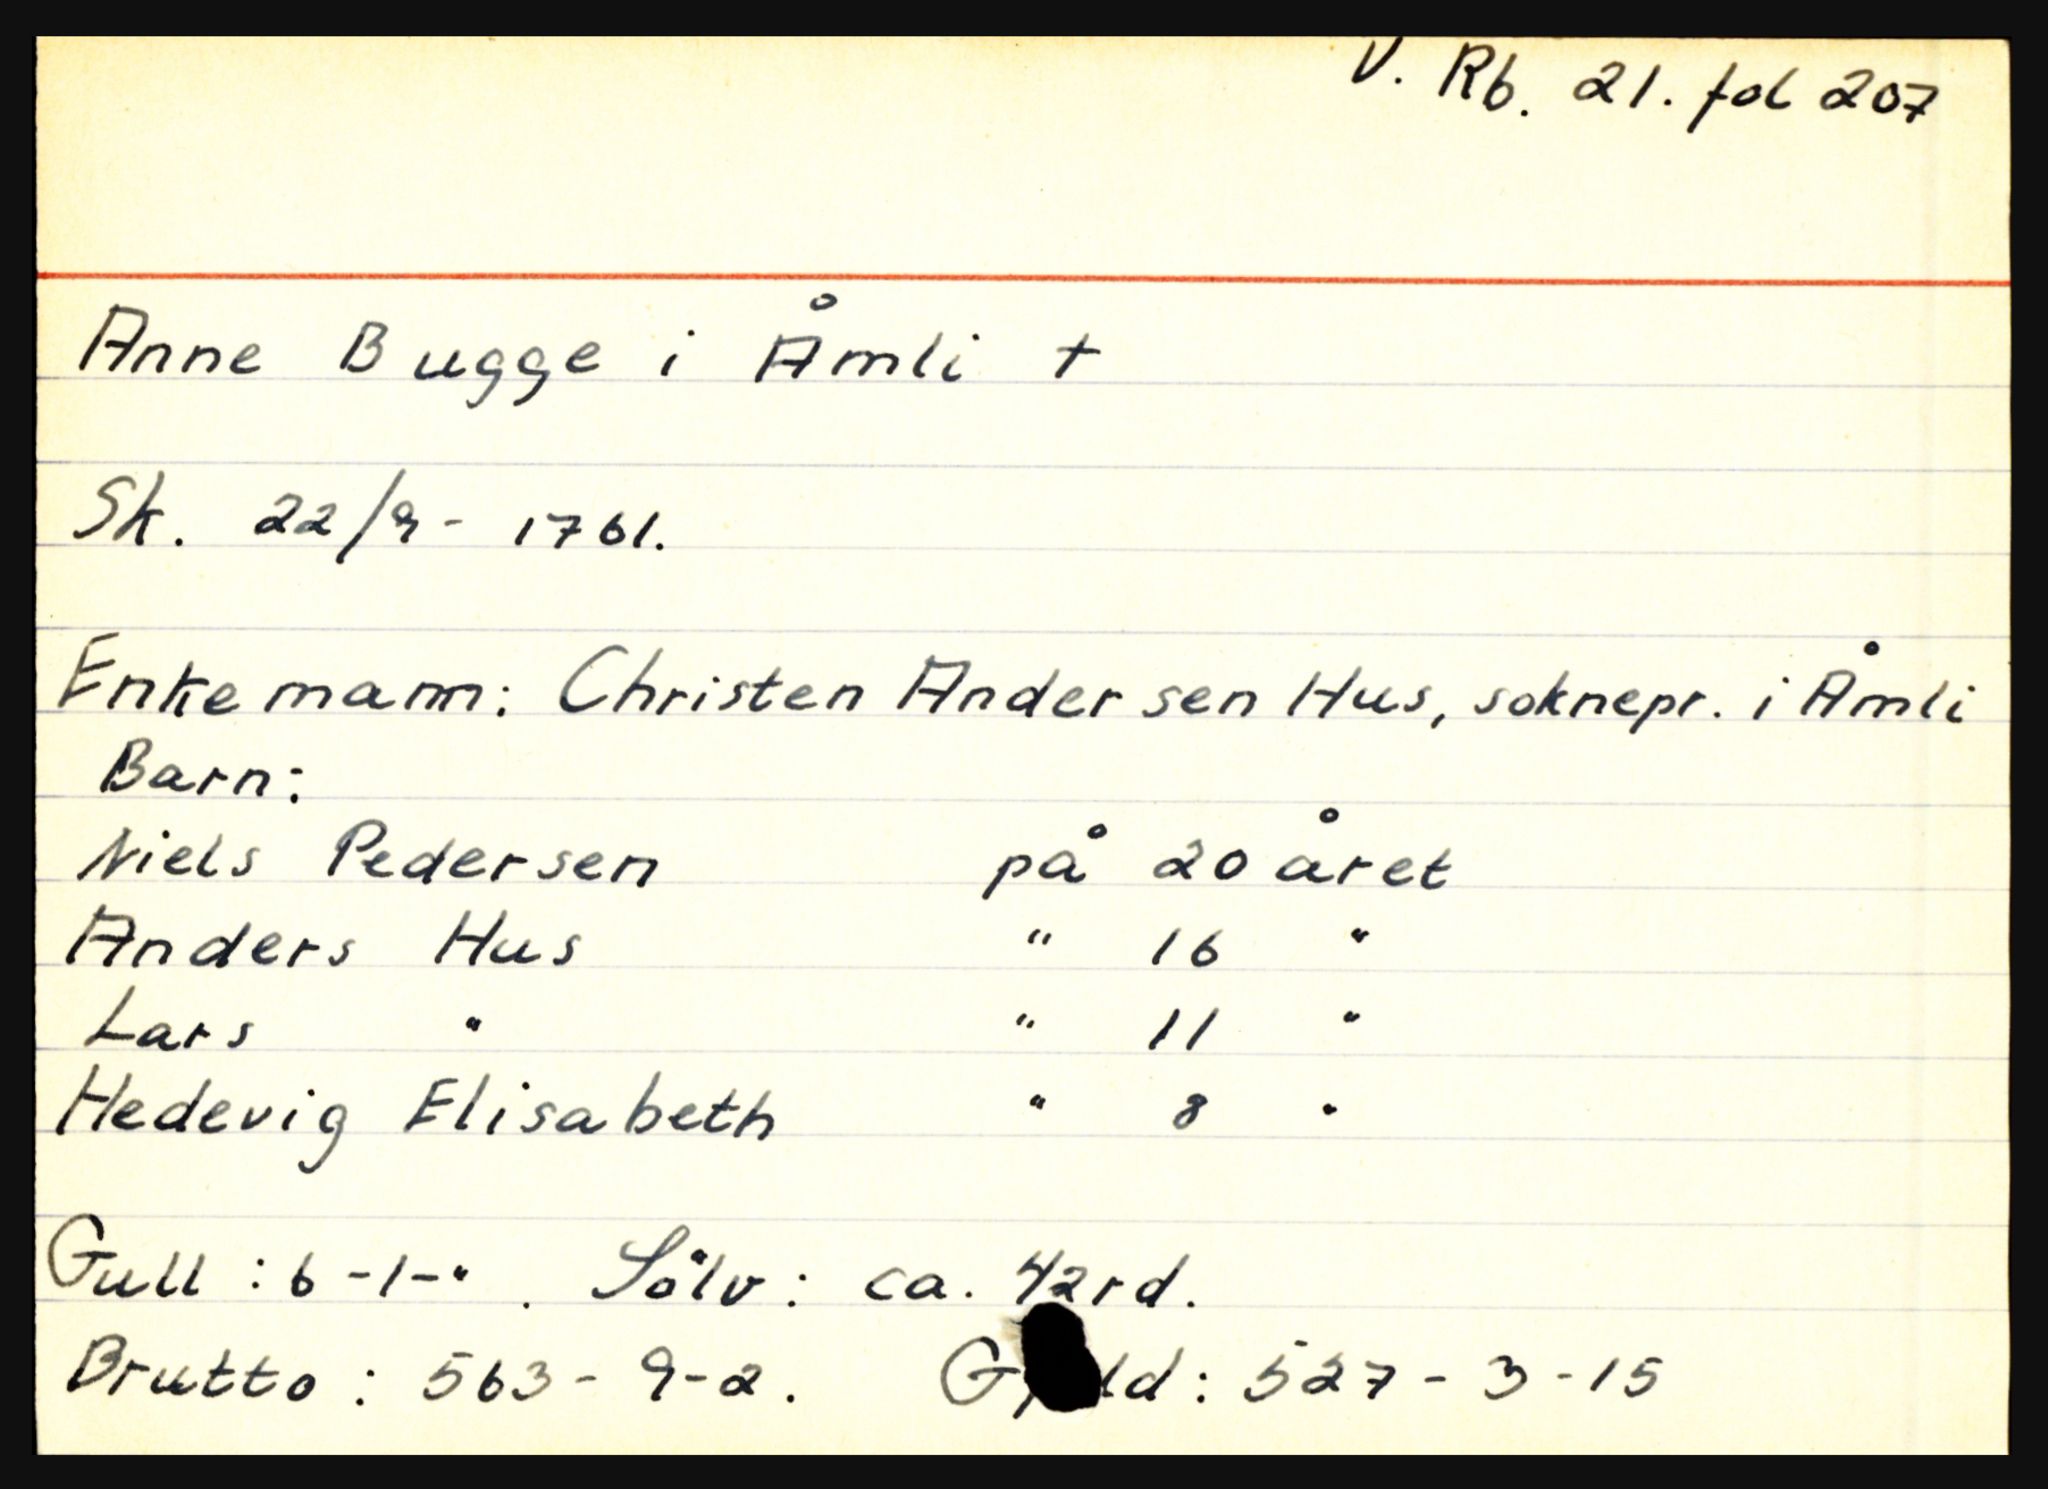 V. Rb. 21. fol 207
Anne Bugge i Åmli +
Sk. 22/9 - 1761.
Enkemann: Christen Andersen Hus, soknepr. i Åmli
Barn:
Niels Pedersen på 20 året
Anders Hus " 16 "
Lars " " 11 "
Hedevig Elisabeth " 8 "
Gull : 6 -1-" . Sölv : ca. 42rd.
Brutto : 563 - 9-2 . : 527 - 3 -15